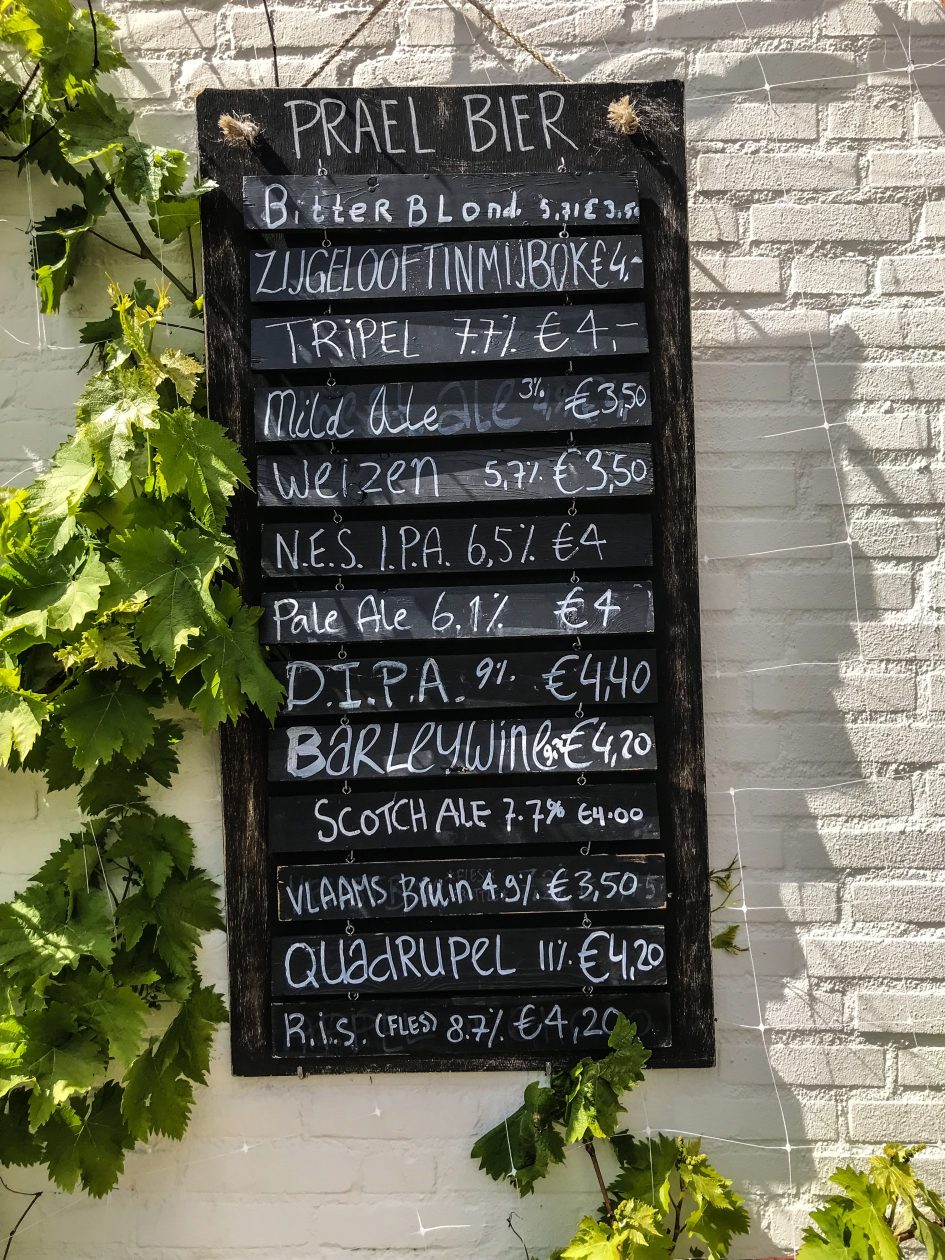 PRAEL BIER
BitterBLond. 5,71 € 3.50
ZIJGELOOFTINMIJBOK €4,-
TRiPEL 7.7% €4,-
Mild Ale 3% €3,50
Weizen 5,7% €3,50
N.E.S. I.P.A. 6,5% €4
Pale Ale 6,1% €4
D.I.P.A. 9% €4,40
BARLeyWine €4,20
SCOTCH ALE 7.7% €4.00
VLAAMS Bruin 4.9% €3,50
QUAdRUPEL 11% €4,20
R.i.s. (FLES) 8.7% €4,20